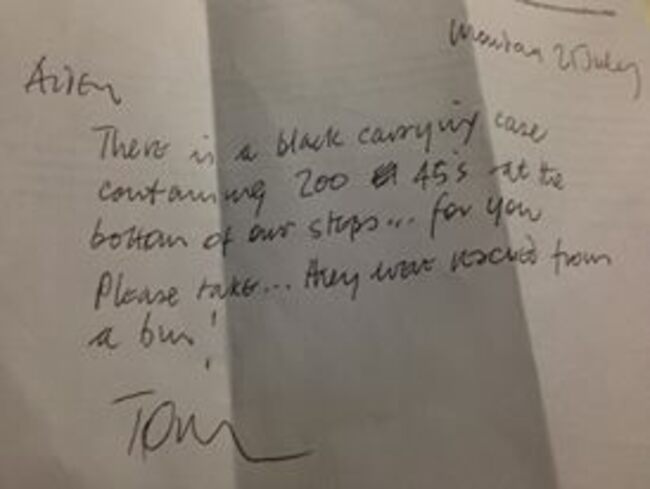 There is a black carrying case
containing 200 45's at the
bottom of our steps... for you
Please take... they were rescued from
a bin!
Tom